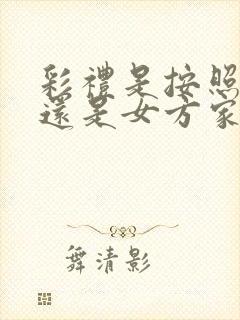 彩禮是按照
還是女方家
舞清影